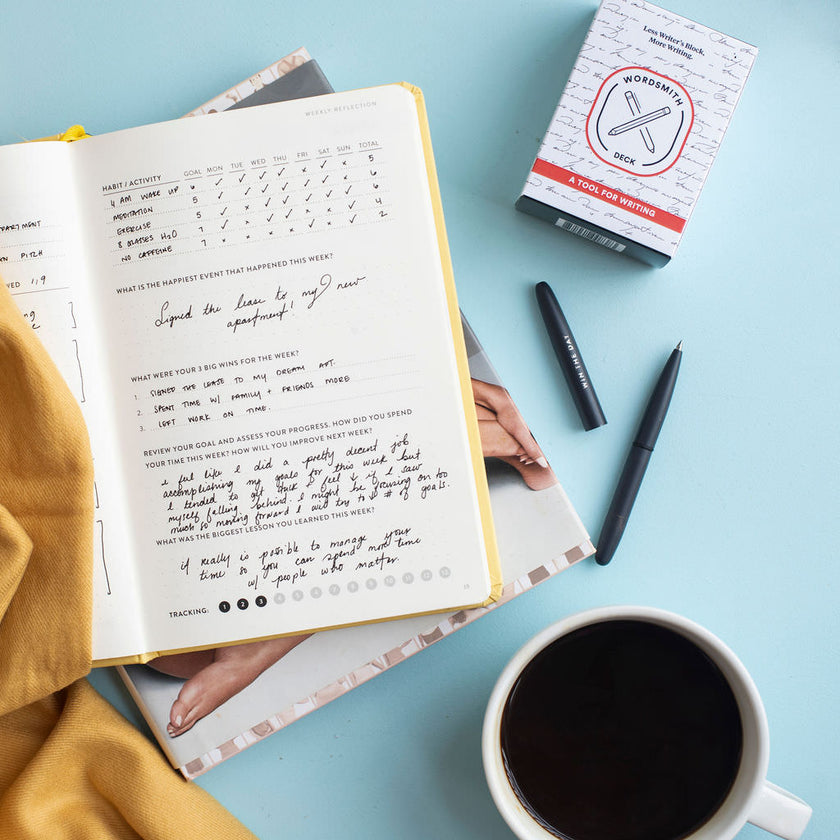 PARTMENT
PITCH
WEEKLY REFLECTION
HABIT / ACTIVITY GOAL MON TUE WED THU FRI SAT SUN TOTAL
4 AM WAKE UP 6 5
MEDITATION 5 6
EXERCISE 5 6
8 GLASSES H2O 7 4
NO CAFFEINE 7 2
WHAT IS THE HAPPIEST EVENT THAT HAPPENED THIS WEEK?
Signed the lease to my new
apartment!
WHAT WERE YOUR 3 BIG WINS FOR THE WEEK?
1. SIGNED THE LEASE TO MY DREAM APT.
2. SPENT TIME W/ FAMILY + FRIENDS MORE
3. LEFT WORK ON TIME.
REVIEW YOUR GOAL AND ASSESS YOUR PROGRESS. HOW DID YOU SPEND
YOUR TIME THIS WEEK? HOW WILL YOU IMPROVE NEXT WEEK?
I feel like I did a pretty decent job
accomplishing my goals for this week but
I tended to get stuck & feel ↓ if I saw
myself falling behind. I might be focusing on too
much so moving forward I will try to ↓ # of goals.
WHAT WAS THE BIGGEST LESSON YOU LEARNED THIS WEEK?
it really is possible to manage your
time so you can spend more time
w/ people who matter.
TRACKING: 1 2 3 4 5 6 7 8 9 10 11 12 13
Less Writer's Block,
More Writing.
WORDSMITH
DECK
A TOOL FOR WRITING
WIN THE DAY